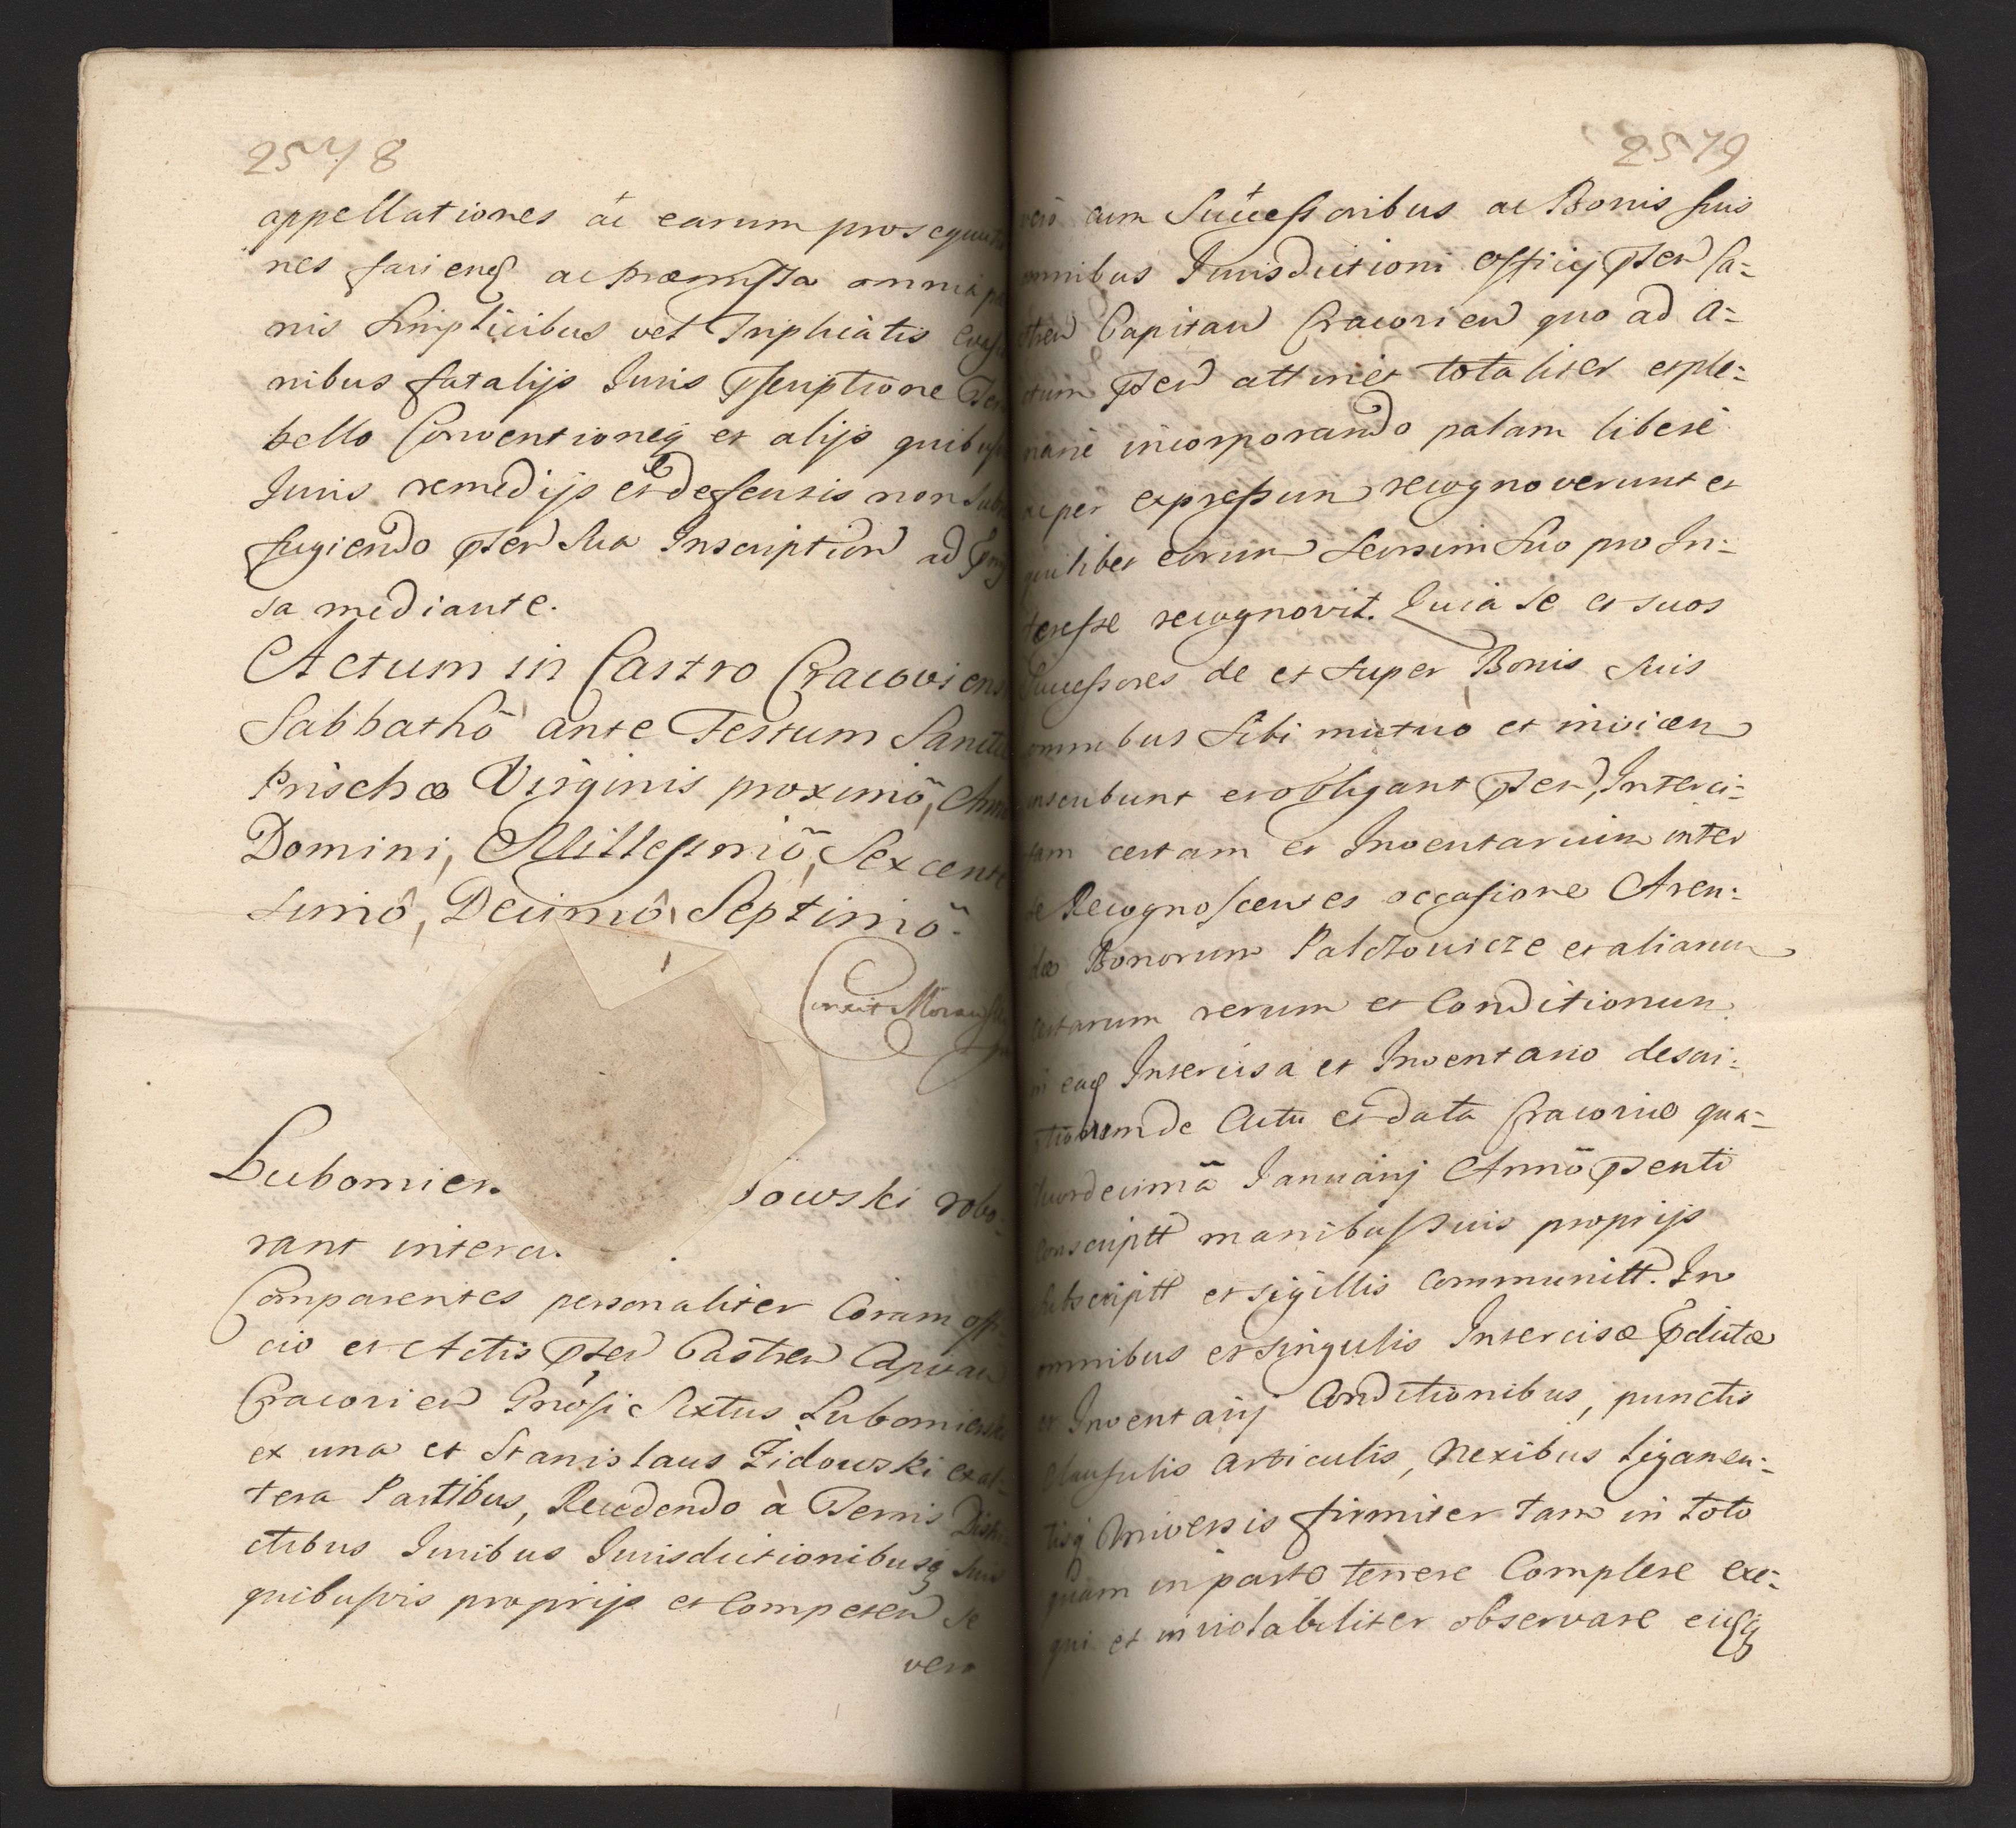 2578
appellationes ac earum prosequutio
nes fariens ac præmissa omnia
nis simplicibus vel Triplicatis
nibus fatalijs Juris Pscriptione
bello Conventioneq et alijs quibusvis
Juris remedijs et defensis non
fugiendo Pnten sua Inscription ad
sa mediante.
Actum in Castro Cracovien
Sabbathô ante Festum Sanctæ
Prischæ Virginis proximô, Anno
Domini, Millessimô, Sexcente
simô, Decimô Septimô.
Lubomier owski robo:
rant interci
Comparentes personaliter Coram offi
cio et Actis Pnten Castren Capitan
Cracovien Gnosi Sextus Lubomierski
ex una et Stanislaus Zidowski ex al:
tera Partibus, Recedendo à Terris Distri
ctibus Juribus Jurisdictionibusq suis
quibusvis proprijs et Competen se
vero
2579
vero cum Successoribus ac Bonis suis
omnibus Jurisdictioni officij Pnten Ca:
stren Capitan Cracovien quo ad a:
ctum Pnten attinet totaliter et ple:
nariè incorporando palam liberè
ac per expressum recognoverunt et
quilibet eorum seorsim suo pro In:
teresse recognovit. Quia se et suos
Successores de et super Bonis suis
omnibus sibi mutuo et invicem
inscribunt et obligant Pnten, Interci:
sam certam et Inventarium inter
se Recognoscentes occasione Aren:
dæ Bonorum Palczowicze et aliarum
certarum rerum et Conditionum
in eaq Intercisa et Inventario descri:
ptionum de Actu et data Cracoviæ qua:
tuordecimâ Januarij Annô Psenti
conscriptt manibus suis proprijs
subscriptt et sigillis communitt. In
omnibus et singulis Intercisæ Pdictæ
et Inventarij Conditionibus, punctis
clausulis articulis, nexibus ligamen:
tisq universis firmiter tam in toto
quàm in parte tenere Complere exe:
qui et inviolabiliter observare eiusq